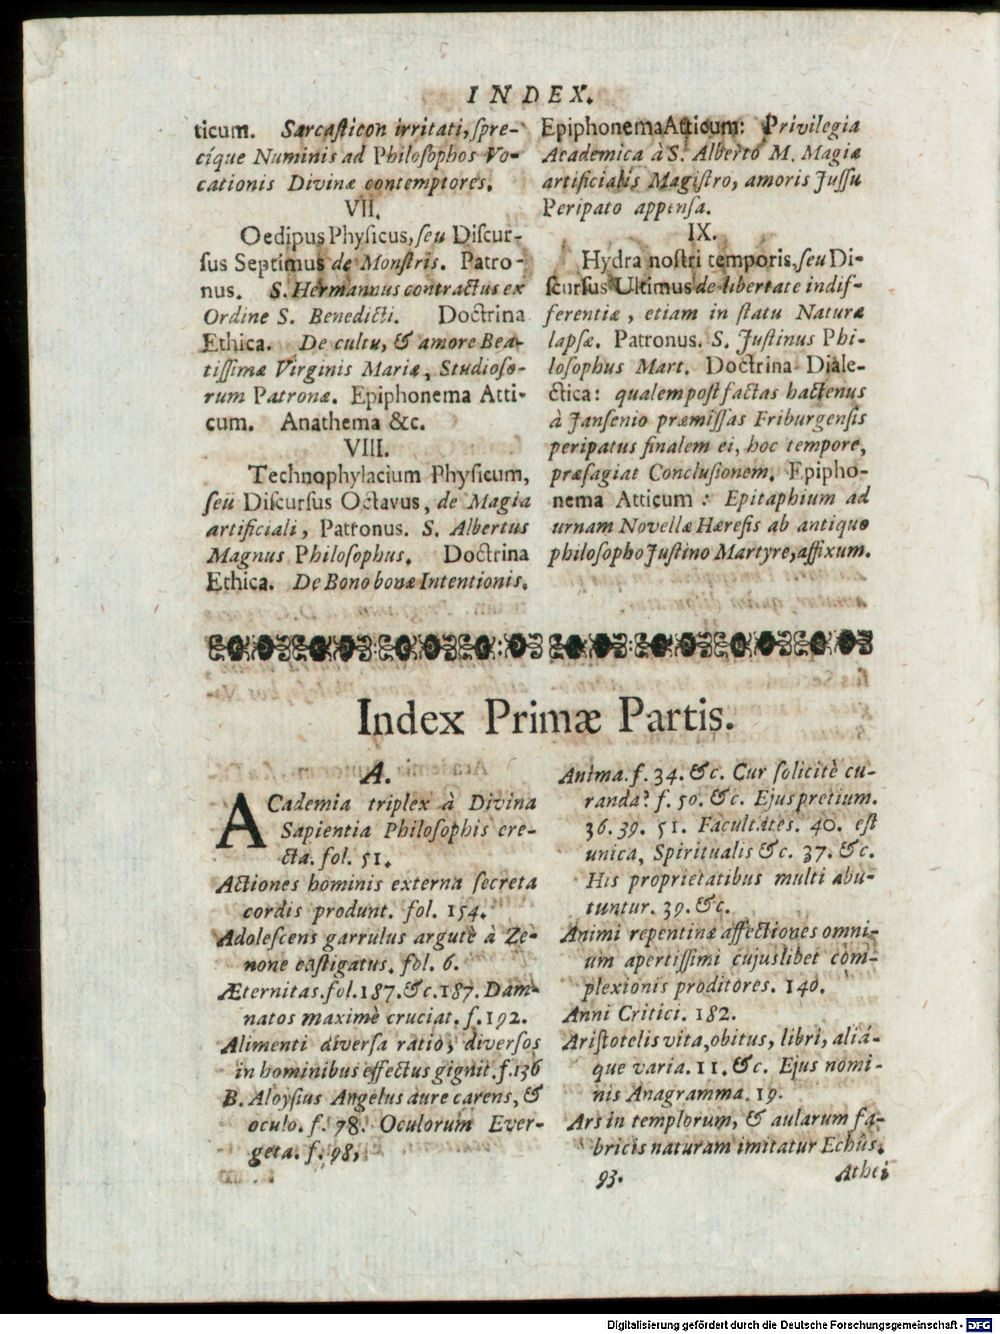 INDEX.
ticum. Sarcaſticon irritati, ſpre-
cíque Numinis ad Philoſophos Vo-
cationis Divinæ contemptores.
VII.
Oedipus Phyſicus, ſeu Diſcur-
ſus Septimus de Monſtris. Patro-
nus. S. Hermannus contractus ex
Ordine S. Benedicti. Doctrina
Ethica. De cultu, & amore Bea-
tiſſimæ Virginis Mariæ, Studioſo-
rum Patronæ. Epiphonema Atti-
cum. Anathema &c.
VIII.
Technophylacium Phyſicum,
ſeü Diſcurſus Octavus, de Magia
artificiali, Patronus. S. Albertus
Magnus Philoſophus. Doctrina
Ethica. De Bono bonæ Intentionis.
Epiphonema Atticum: Privilegia
Academica à S. Alberto M. Magiæ
artificialis Magiſtro, amoris Juſſu
Peripato appenſa.
IX.
Hydra noſtri temporis, ſeu Di-
ſcurſus Ultimus de libertate indif-
ferentiæ, etiam in ſtatu Naturæ
lapſæ. Patronus. S. Juſtinus Phi-
loſophus Mart. Doctrina Diale-
ctica: qualem poſt factas hactenus
à Janſenio præmiſſas Friburgenſis
peripatus finalem ei, hoc tempore,
præſagiat Concluſionem. Epipho-
nema Atticum: Epitaphium ad
urnam Novellæ Hæreſis ab antiquo
philoſopho Juſtino Martyre, affixum.
Index Primæ Partis.
A.
ACademia triplex à Divina
Sapientia Philoſophis ere-
cta. fol. 51.
Actiones hominis externa ſecreta
cordis produnt. fol. 154.
Adoleſcens garrulus argutè à Ze-
none caſtigatus. fol. 6.
Æternitas. fol. 187. &c. 187. Dam-
natos maximè cruciat. f. 192.
Alimenti diverſa ratio, diverſos
in hominibus effectus gignit. f. 136
B. Aloyſius Angelus aure carens, &
oculo. f. 78. Oculorum Ever-
geta. f. 98,
Anima. f. 34. &c. Cur ſolicitè cu-
randa? f. 50. &c. Ejus pretium.
36. 39. 51. Facultates. 40. eſt
unica, Spiritualis &c. 37. &c.
His proprietatibus multi abu-
tuntur. 39. &c.
Animi repentinæ affectiones omni-
um apertiſſimi cujuslibet com-
plexionis proditores. 140.
Anni Critici. 182.
Ariſtotelis vita, obitus, libri, aliá-
que varia. 11. &c. Ejus nomi-
nis Anagramma. 19.
Ars in templorum, & aularum fa-
bricis naturam imitatur Echûs.
93. Athei
Digitalisierung gefördert durch die Deutsche Forschungsgemeinschaft - DFG